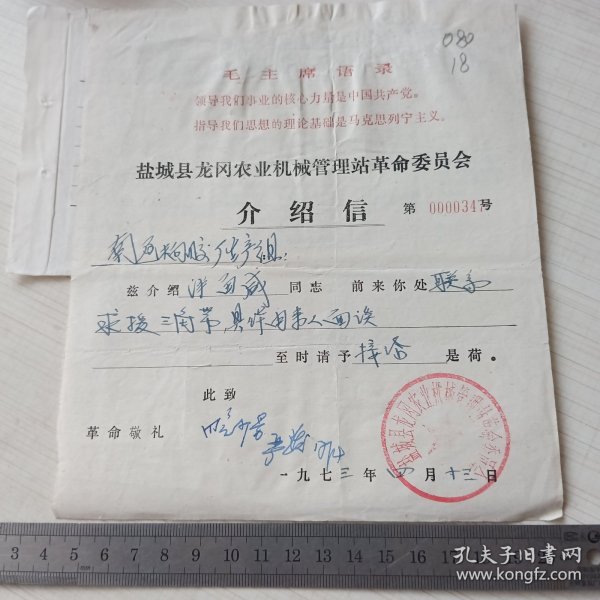 080
18
毛主席语录
领导我们事业的核心力量是中国共产党。
指导我们思想的理论基础是马克思列宁主义。
盐城县龙冈农业机械管理站革命委员会
介绍信 第0000347号
生产组:
兹介绍 同志 前来你处联系
求援三角带具体由来人面谈
至时请予接洽是荷。
此致
革命敬礼
一九七三年四月十三日
盐城县龙冈农业机械管理站革命委员会
3 4 5 6 7 8 9 10 11 12 13 14 15 16 17 18 19 20
孔夫子旧书网
www.kongfz.com